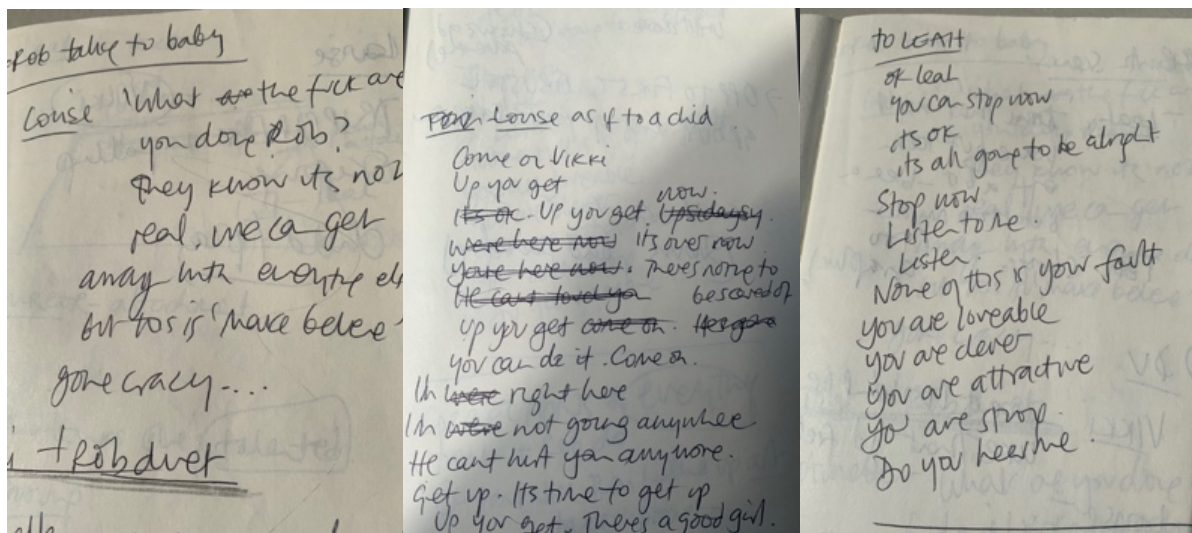 Rob talking to baby
Louise 'What are the fuck are
you doing Rob?
They know its not
real we can get
away with everything els
but this is 'make believe'
gone crazy....
+ Rob duet
Louise as if to a child
Come on Vikki
Up you get
now.
Its ok. Up you get. Upsidaysy.
were here now its over now
youre here now. Theres no one to
He cant touch you be scared of
Up you get come on. Hes gone
you can do it. Come on.
Im were right here
Im were not going anywhere
He cant hurt you anymore.
Get up. Its time to get up
Up you get. Theres a good girl.
TO LEAH
ok leah
you can stop now
its ok
its all going to be alright
Stop now
Listen to me.
Listen.
None of this is your fault
you are loveable
you are clever
You are attractive
You are strong.
Do you hear me.